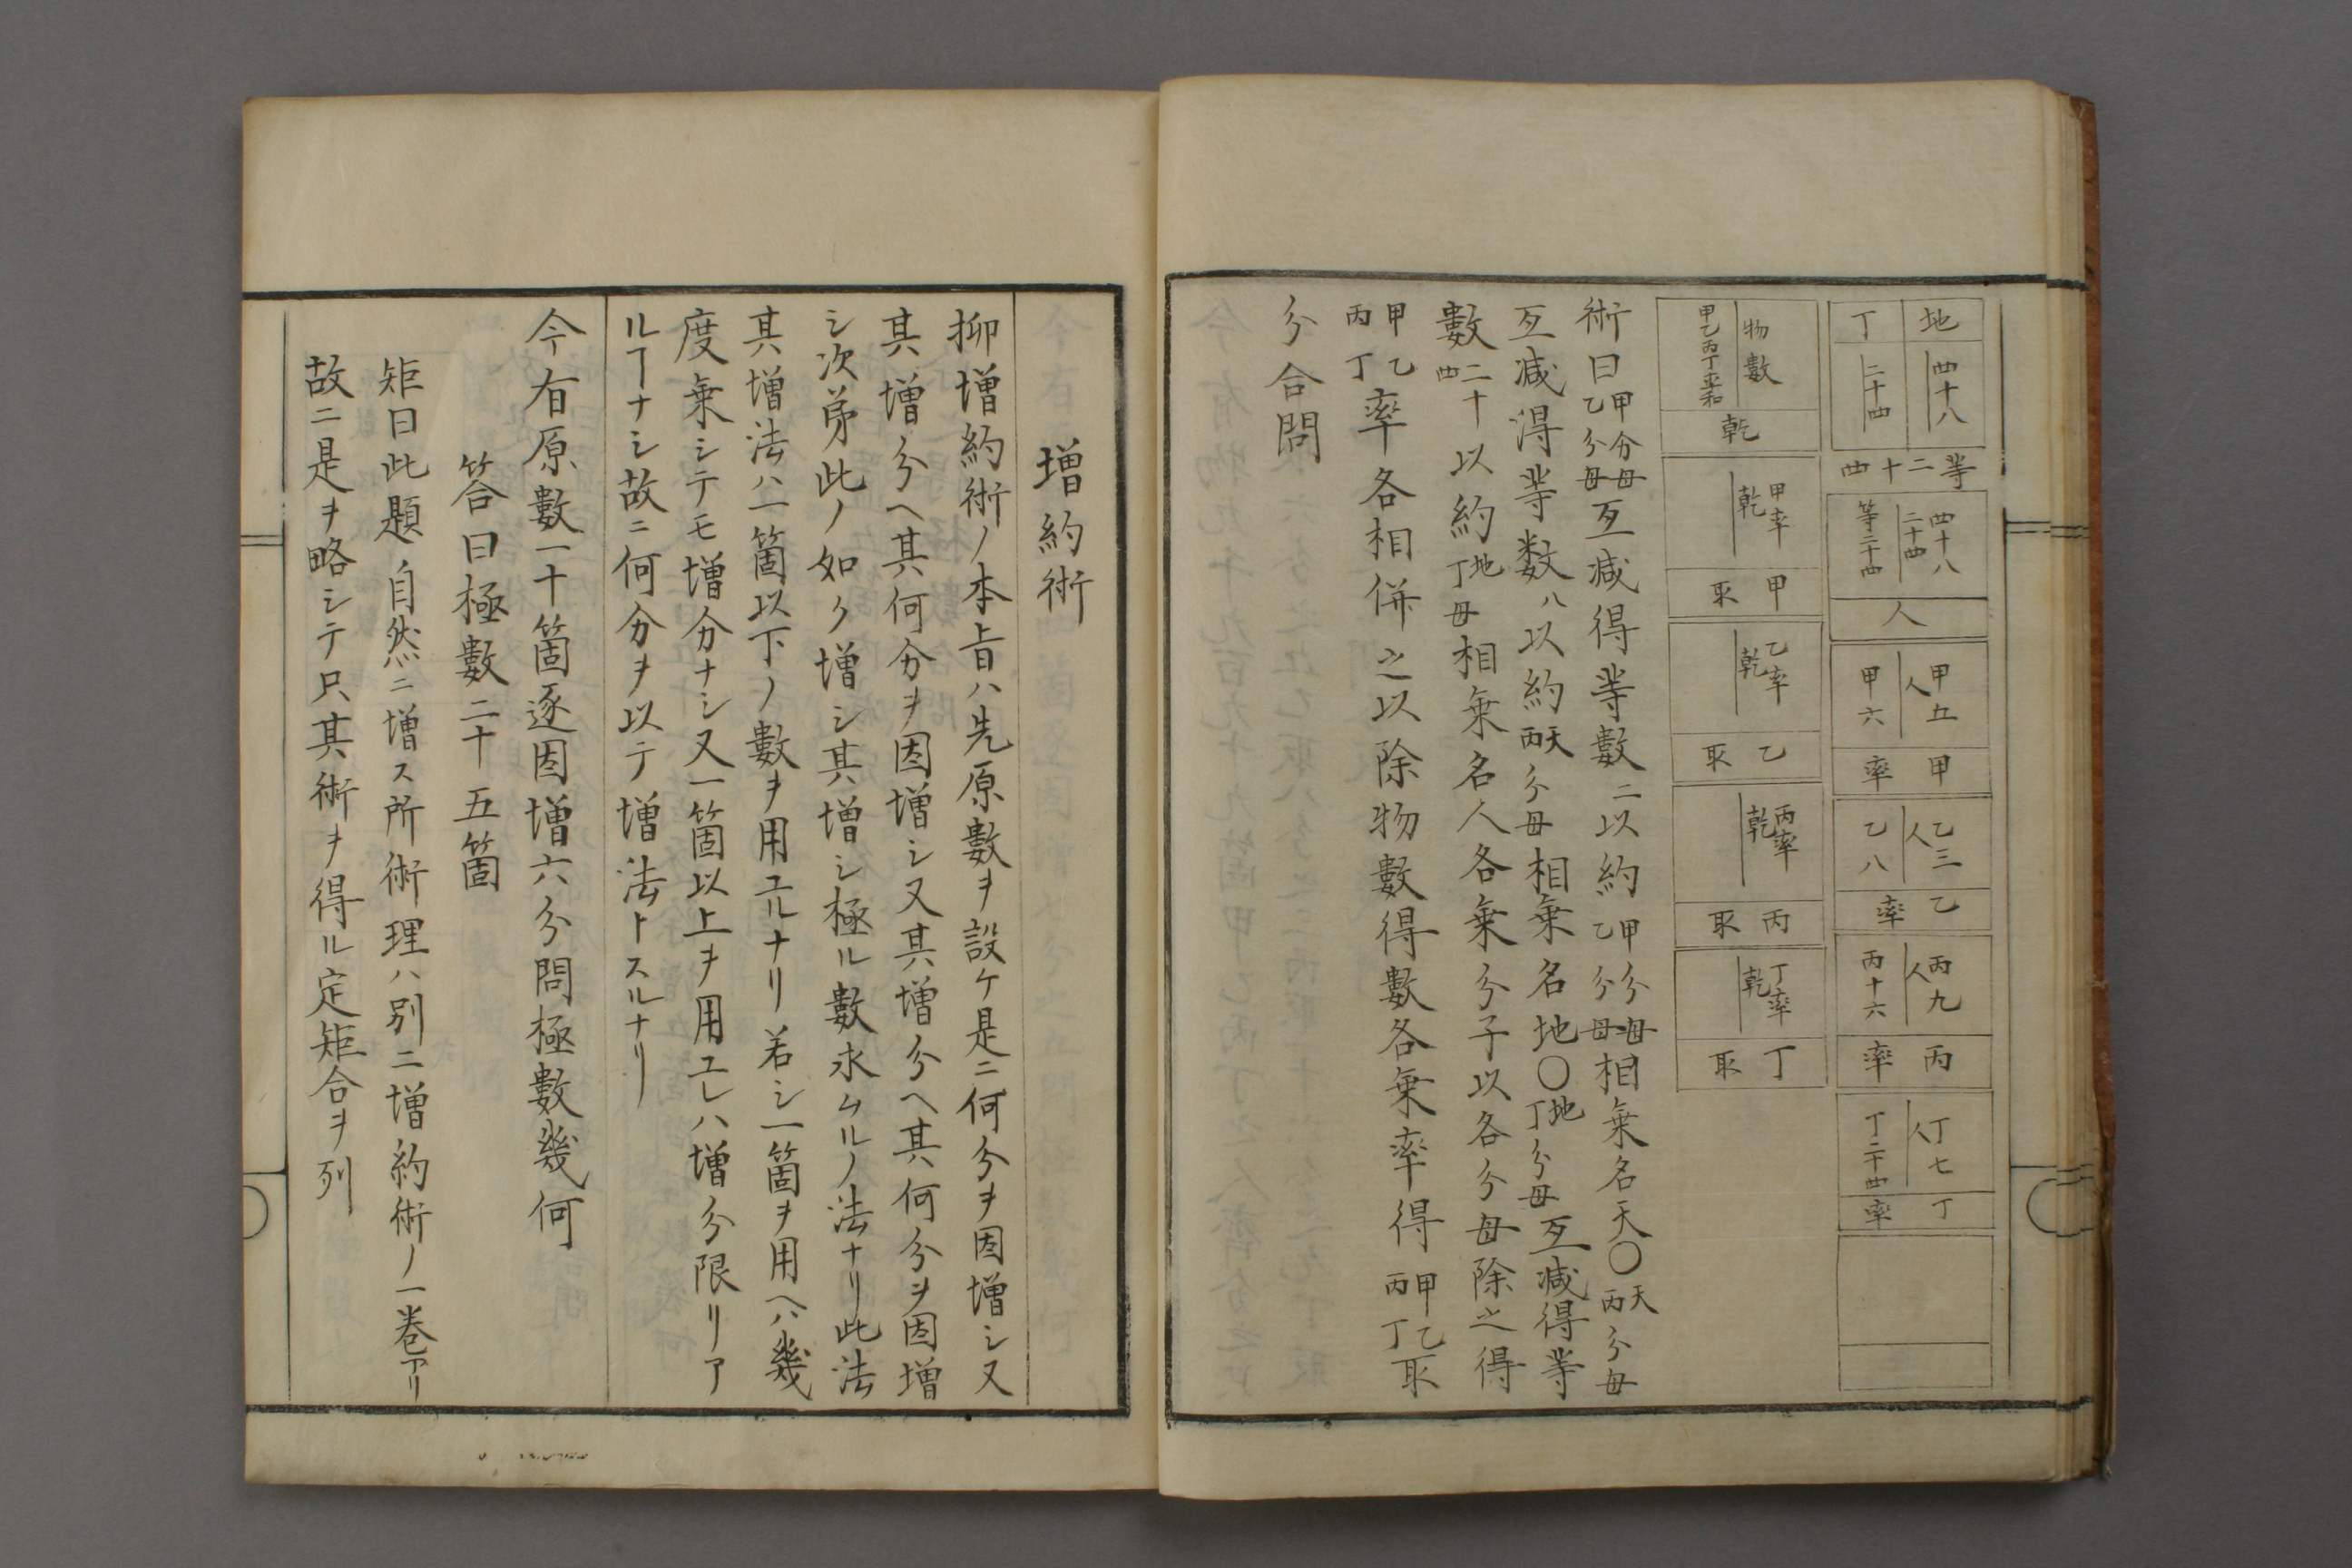 地 四十八
丁 二十四
等二十四
四十八 二十四
等二十四
人
甲五 人
甲六
甲率
乙三 人
乙八
乙率
丙九 人
丙十六
丙率
丁七 人
丁二十四
丁率
物數
甲乙丙丁率和
乾
甲率 乾
甲取
乙率 乾
乙取
丙率 乾
丙取
丁率 乾
丁取
術曰甲分母乙分母互減得等數二以約甲分母乙分母相乗名天〇天丙分母
互減得等数八以約天丙分母相乗名地〇地丁分母互減得等
數二十四以約地丁母相乗名人各乗分子以各分母除之得
甲乙丙丁率各相併之以除物數得數各乗率得甲乙丙丁取
分合問
増約術
抑増約術ノ本旨ハ先原數ヲ設ケ是ニ何分ヲ因増シ又
其増分ヘ其何分ヲ因増シ又其増分ヘ其何分ヲ因増
シ次第此ノ如ク増シ其増シ極ル數求ムルノ法ナリ此法
其増法ハ一箇以下ノ數ヲ用エルナリ若シ一箇ヲ用ヘハ幾
度乗シテモ増分ナシ又一箇以上ヲ用エレハ増分限リア
ルヿナシ故ニ何分ヲ以テ増法トスルナリ
今有原數一十箇逐因増六分問極數幾何
答曰極數二十五箇
矩曰此題自然ニ増ス所術理ハ別ニ増約術ノ一巻アリ
故ニ是ヲ略シテ只其術ヲ得ル定矩合ヲ列